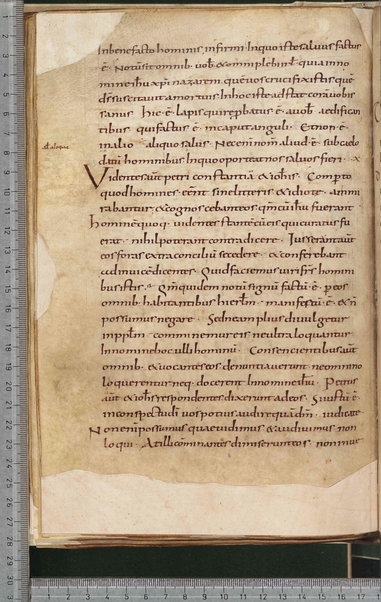 In benefacto hominis infirmi. In quo iste saluus factus
ē. Notū sit omnib. uob. & omni plebi isrł. quia in no
mine ihu xpi nazareni. quē uos crucifixistis quē
ds suscitauit a mortuis. In hoc iste adstat corā uobis
sanus. Hic ē lapis qui reprobatus ē. a uob. aedifican
tibus. qui factus ē. in caput anguli. Et non ē.
in alio aliquo salus. Nec enī nomen aliud ē sub caelo
datū hominibus In quo oportet nos saluos fieri.
Videntes aūt petri constantiā & iohis. Comperto
quod homines eēnt sine litteris & idiotę. ammi
rabantur. & cognoscebant eos qm cū ihu fuerant.
Hominē quoq. uidentes stantē cū eis qui curatus fu
erat. nihil poterant contradicere. Iusserunt aūt
eos foras extra conciliū secedere. & conferebant
ad inuicē dicentes. Quid faciemus uiri frs homini
bus istis. Qm quidem notū signū factū ē. p eos
omnib. habitantibus hierlm. manifestū ē. & ñ
possumus negare. Sed ne amplius diuulgetur
in pplm. comminemur eis ne ultra loquantur
In nomine hoc ulli hominū. Consencientibus aūt
omnib. & uocantes eos denuntiauerunt ne omnino
loquerentur neq. docerent In nomine ihu. Petrus
aūt & iohs respondentes dixerunt ad eos. Si iustū ē
in conspectu di uos potius audire quā dm. iudicate
Non enī possumus quae uidimus & audiuimus non
loqui. At illi cōminantes dimiserunt eos. non inue